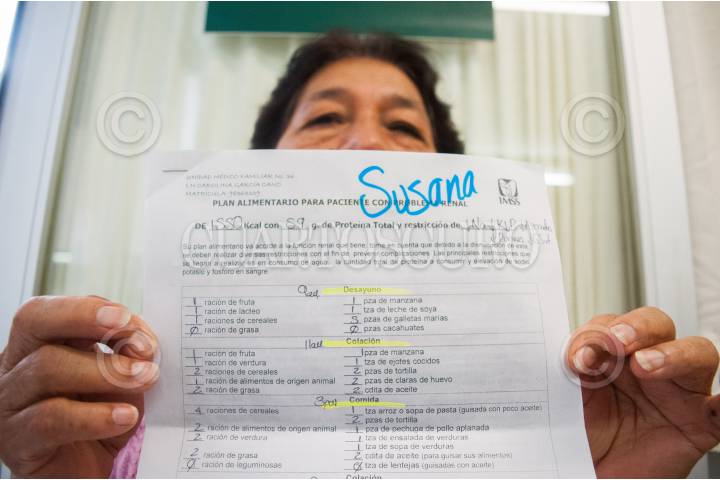 UNIDAD MÉDICO FAMILIAR No.
LN CAROLINA GARCIA CANO
MATRICULA:
Susana
IMSS
PLAN ALIMENTARIO PARA PACIENTE CON PROBLEMA RENAL
DE 1550 Kcal con 59 g. de Proteína Total y restricción de
Su plan alimentario va acorde a la función renal que tiene, tome en cuenta que debido a la disminución de esta
se deben realizar diversas restricciones con el fin de prevenir complicaciones. Las principales restricciones que
se llegan a realizar es en consumo de agua, la cantidad total de proteína a consumir y elevación de sodio,
potasio y fosforo en sangre
9am Desayuno
1 ración de fruta 1 pza de manzana
1 ración de lácteo 1 tza de leche de soya
1 raciones de cereales 5 pzas de galletas marias
Ø ración de grasa Ø pzas cacahuates
11am Colación
1 ración de fruta 1 pza de manzana
1 ración de verdura 1 tza de ejotes cocidos
2 raciones de cereales 2 pzas de tortilla
1 ración de alimentos de origen animal 2 pzas de claras de huevo
2 ración de grasa 2 cdita de aceite
3pm Comida
4 raciones de cereales 1 tza arroz o sopa de pasta (guisada con poco aceite)
2 pzas de tortilla
2 ración de alimentos de origen animal 1 pza de pechuga de pollo aplanada
2 ración de verdura 1 tza de ensalada de verduras
1 tza de sopa de verduras
2 ración de grasa 2 cdita de aceite (para guisar sus alimentos)
Ø ración de leguminosas Ø tza de lentejas (guisadas con aceite)
Colación